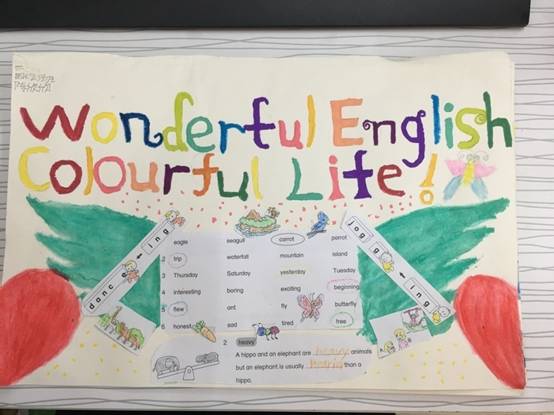 Wonderful English
Colourful Life!
dance + ing
jog g + ing
eagle seagull carrot parrot
2 trip waterfall mountain island
3 Thursday Saturday yesterday Tuesday
4 interesting boring exciting beginning
5 flew ant fly butterfly
6 honest sad tired free
2 heavy
A hippo and an elephant are heavy animals
but an elephant is usually than a
hippo.